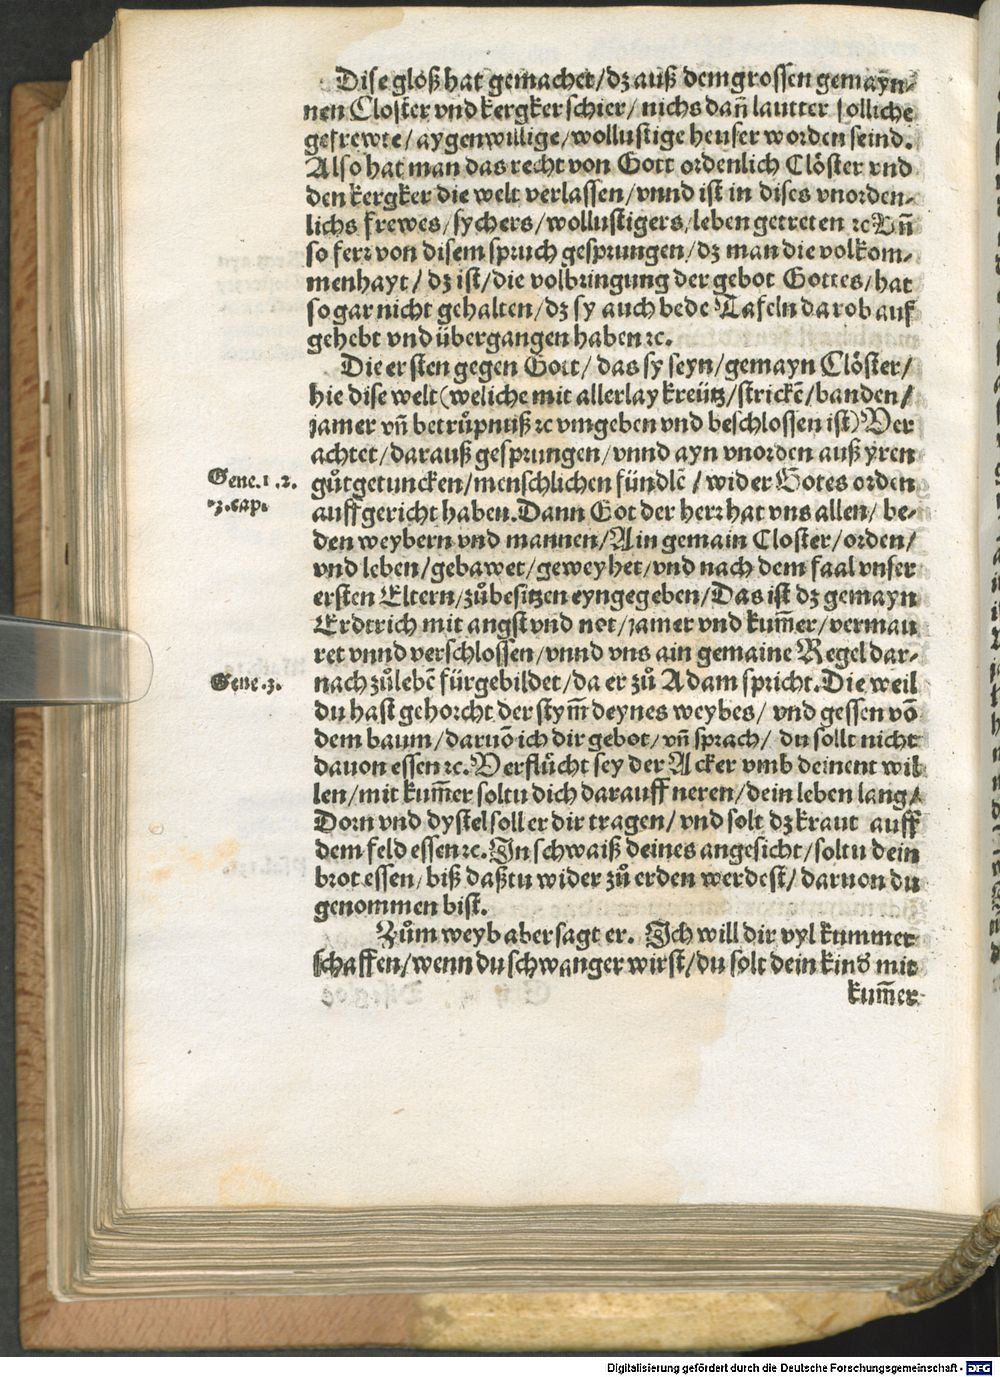 Dise gloß hat gemachet/dz auß dem grossen gemayn⸗
nen Closter vnd kergker schier/ nichs dañ lautter solliche
gefrewte/ aygenwillige/wollustige heuser worden seind.
Also hat man das recht von Gott ordenlich Clöster vnd
den kergker die welt verlassen/vnnd ist in dises vnorden⸗
lichs frewes/sychers/wollustigers/leben getreten ꝛc Vñ
so ferꝛ von disem spruch gesprungen/dz man die volkom⸗
menhayt/ dz ist/die volbringung der gebot Gottes/hat
so gar nicht gehalten/dz sy auch bede Tafeln darob auf
gehebt vnd übergangen haben ꝛc.
Die ersten gegen Gott/ das sy seyn/gemayn Clöster/
hie dise welt (weliche mit allerlay kreütz/strickē/banden/
jamer vñ betrůpnuß ꝛc vmgeben vnd beschlossen ist) Ver
achtet/darauß gesprungen/vnnd ayn vnorden auß yren
Gene.1.2.
3.cap.
gůtgetuncken/menschlichen fündlē/wider Gotes orden
auffgericht haben. Dann Got der herꝛ hat vns allen/ be⸗
den weybern vnd mannen/Ain gemain Closter/orden/
vnd leben/gebawet/geweyhet/vnd nach dem faal vnser
ersten Eltern/zůbesitzen eyngegeben/Das ist dz gemayn
Erdtrich mit angst vnd not/jamer vnd kum̄er/vermau
ret vnnd verschlossen/vnnd vns ain gemaine Regel dar⸗
Gene.3.
nach zůlebē fürgebildet/da er zů Adam spricht. Die weil
du hast gehorcht der stym̄ deynes weybes/ vnd gessen võ
dem baum/daruõ ich dir gebot/vñ sprach/ du sollt nicht
dauon essen ꝛc. Verflůcht sey der Acker vmb deinent wil
len/mit kum̄er soltu dich darauff neren/dein leben lang/
Dorn vnd dystel soll er dir tragen/ vnd solt dz kraut auff
dem feld essen ꝛc. Jn schwaiß deines angesicht/soltu dein
brot essen/biß daß tu wider zů erden werdest/ daruon du
genommen bist.
Zům weyb aber sagt er. Jch will dir vyl kummer
schaffen/wenn du schwanger wirst/du solt dein kind mit
kum̄er
Digitalisierung gefördert durch die Deutsche Forschungsgemeinschaft - DFG